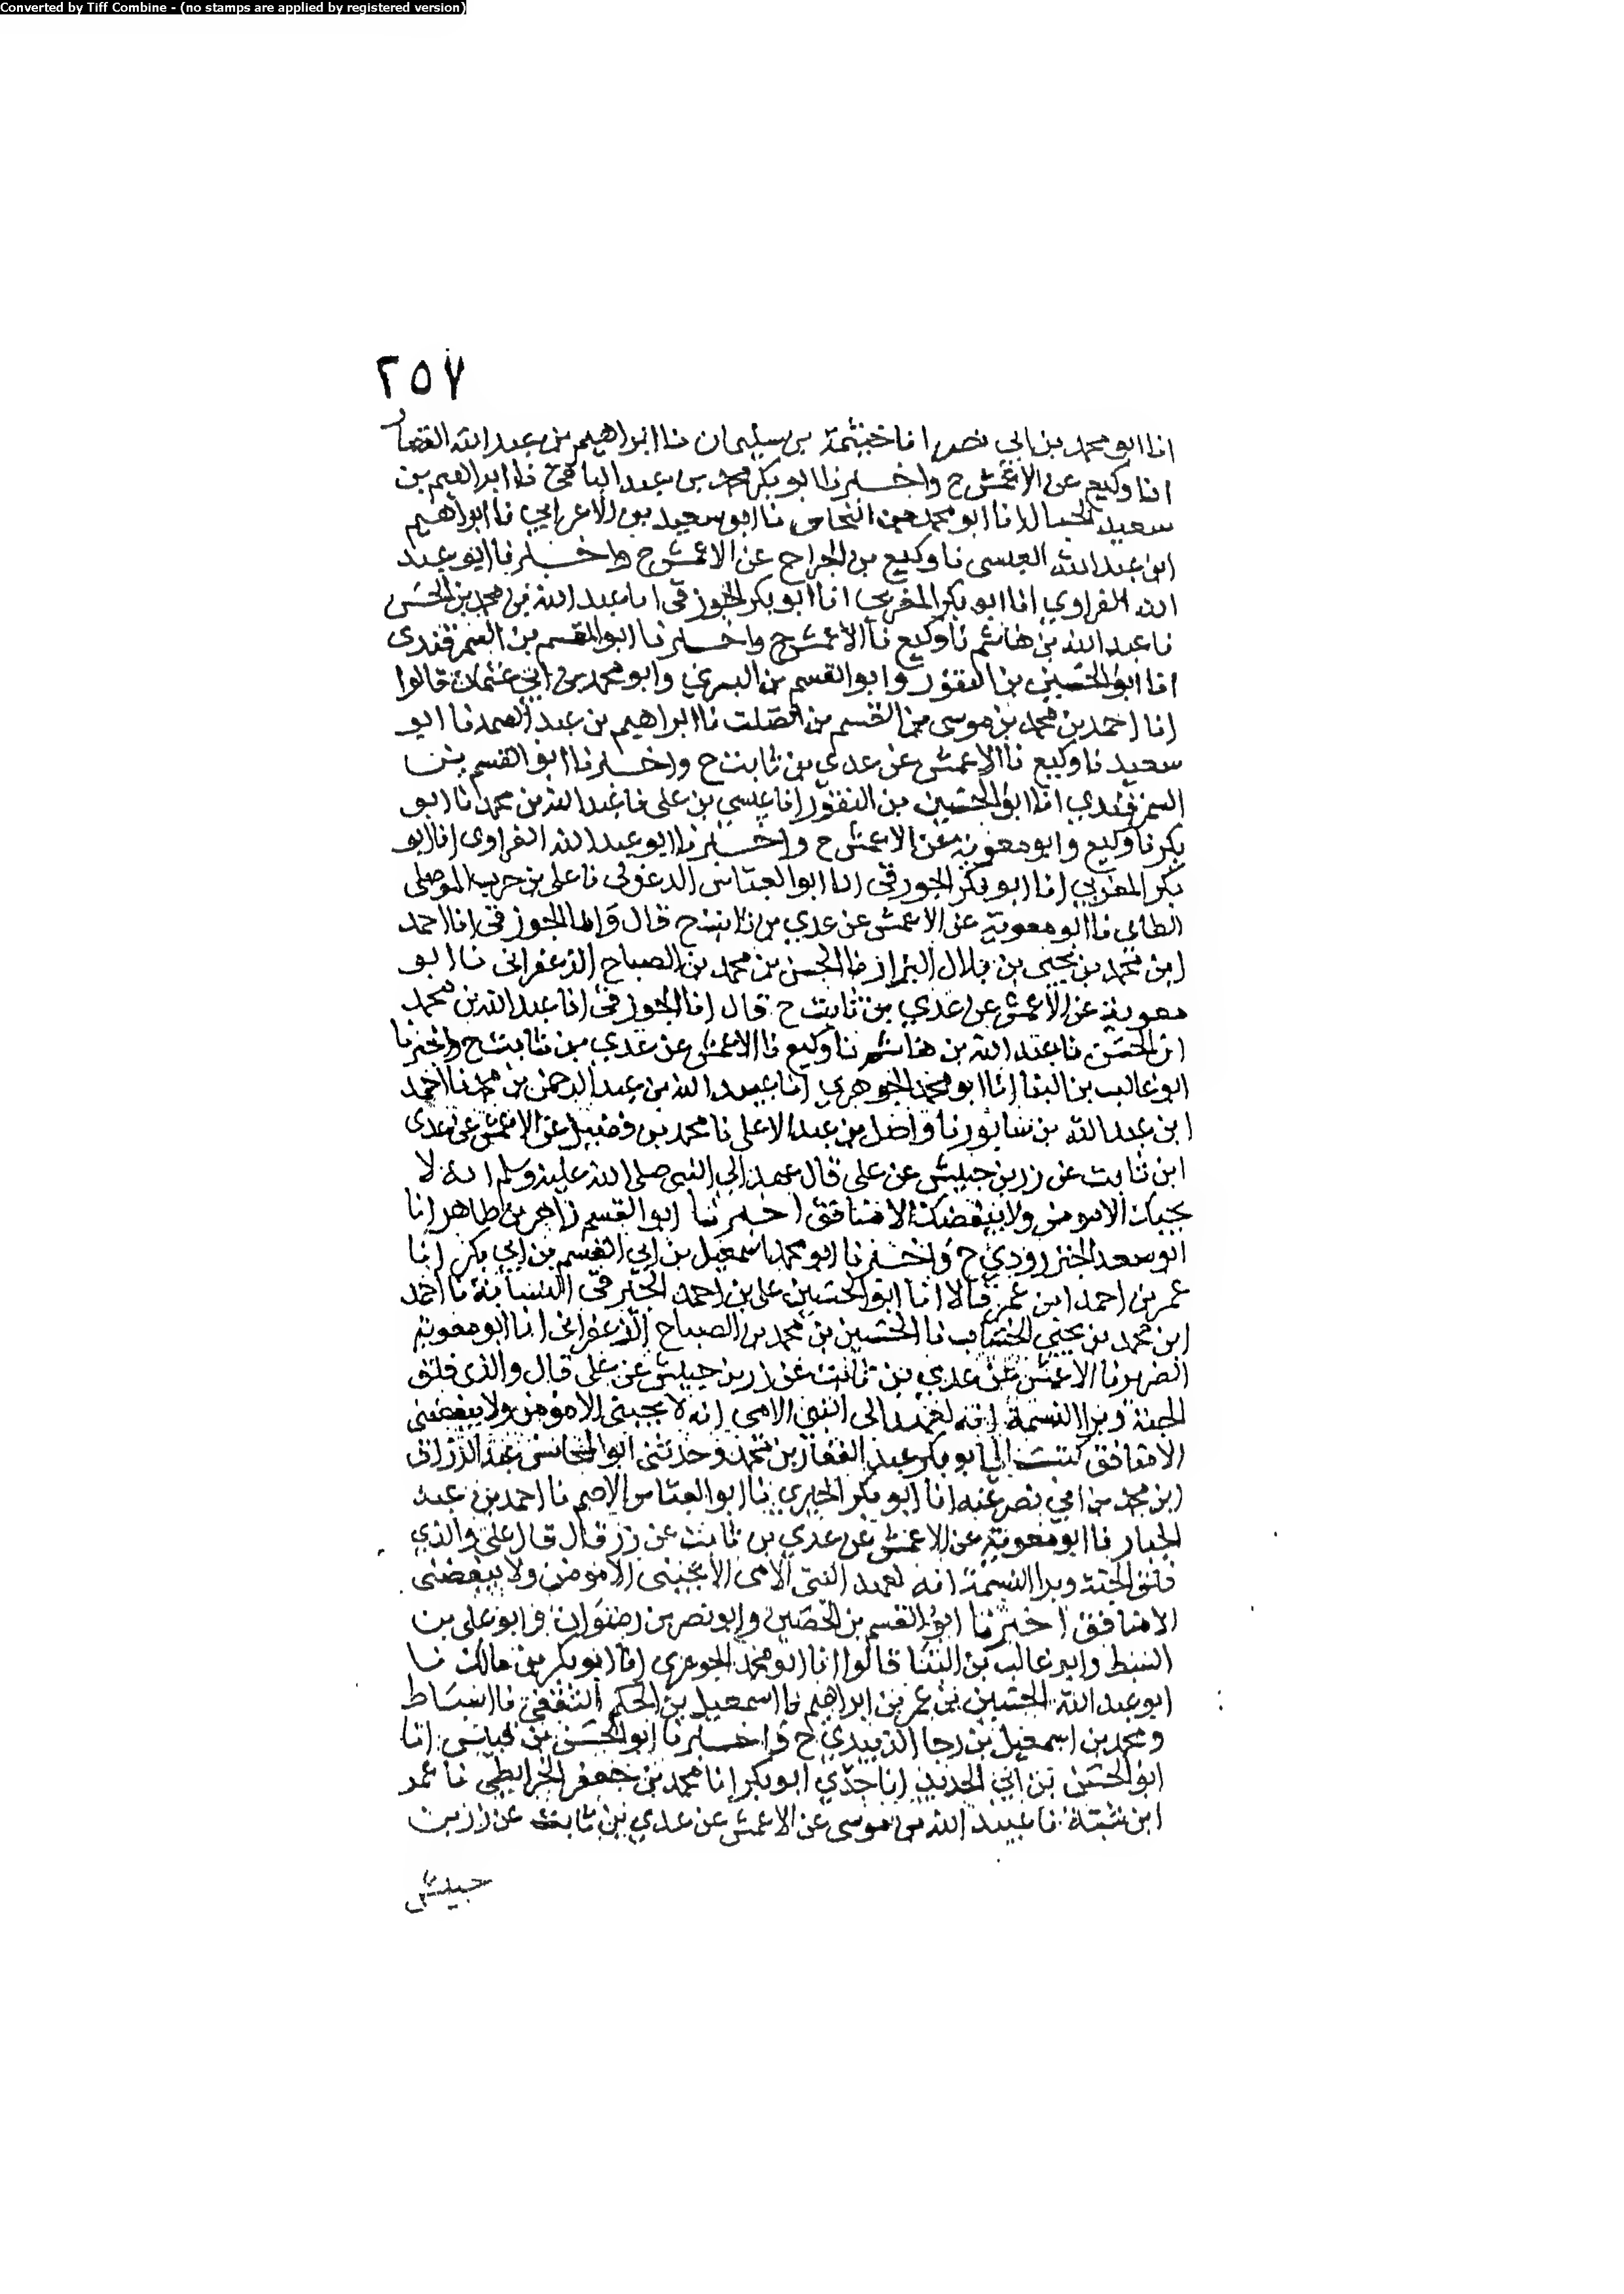 Converted by Tiff Combine - (no stamps are applied by registered version)
٢٥٧
انا ابو محمد بن ابي نصر انا خيثمة بن سليمان نا ابراهيم بن عبد الله القصار
انا وكيع عن الاعمش ح واخبرنا ابو بكر محمد بن عبد الباقي نا ابراهيم بن
سعيد الحبال انا ابو محمد بن النحاس نا ابو سعيد بن الاعرابي نا ابراهيم
ابن عبد الله العبسى نا وكيع بن الجراح عن الاعمش ح واخبرنا ابو عبد
الله الفراوي انا ابو بكر المغربي انا ابو بكر الجوزقى انا عبد الله بن محمد بن الحسن
نا عبد الله بن هاشم نا وكيع نا الاعمش ح واخبرنا ابو القسم بن السمرقندى
انا ابو الحسين بن النقور وابو القسم بن البسري وابو محمد بن ابي عثمان قالوا
انا احمد بن محمد بن موسى بن القسم بن الصلت نا ابراهيم بن عبد الصمد نا ابو
سعيد نا وكيع نا الاعمش عن عدي بن ثابت ح واخبرنا ابو القسم بن
السمرقندي انا ابو الحسين بن النقور انا عيسي بن على نا عبد الله بن محمد نا ابو
بكر نا وكيع وابو معوية عن الاعمش ح واخبرنا ابو عبد الله الفراوى انا ابو
بكر المغربي انا ابو بكر الجوزقى انا ابو العباس الدغولى نا على بن حرب الموصلى
الطاى نا ابو معوية عن الاعمش عن عدي بن ثابت ح قال وانا الجوزقى انا احمد
ابن محمد بن يحيى بن بلال البزاز نا الحسن بن محمد بن الصباح الزعفرانى نا ابو
معوية عن الاعمش عن عدي بن ثابت ح قال انا الجوزقى انا عبد الله بن محمد
ابن الحسن نا عبد الله بن هاشم نا وكيع نا الاعمش عن عدي بن ثابت ح واخبرنا
ابو غالب بن البنا انا ابو محمد الجوهري انا عبيد الله بن عبد الرحمن بن محمد نا احمد
ابن عبد الله بن سابور نا واصل بن عبد الاعلى نا محمد بن فضيل عن الاعمش عن عدى
ابن ثابت عن زر بن حبيش عن على قال عهد الي النبى صلى الله عليه وسلم انه لا
يحبك الا مومن ولا يبغضك الا منافق اخبرنا ابو القسم زاهر بن طاهر انا
ابو سعد الجنزرودي ح واخبرنا ابو محمد اسمعيل بن ابي القسم بن ابي بكر انا
عمر بن احمد ابن عمر قالا انا ابو الحسين على بن احمد نا احمد
ابن محمد بن يحيي الخشاب نا الحسين بن محمد بن الصباح الزعفرانى انا ابو معوية
الضرير نا الاعمش عن عدي بن ثابت عن زر بن حبيش عن على قال والذى فلق
الحبة وبرا النسمة انه لعهد الى النبى الامى انه لا يحبنى الا مؤمن ولا يبغضنى
الا منافق كتب الي ابو بكر عبد الغفار بن محمد وحدثنى ابو المحاسن عبد الرزاق
ابن محمد بن ابي نصر عنه انا ابو بكر الحيري نا ابو العباس الاصم نا احمد بن عبد
الجبار نا ابو معوية عن الاعمش عن عدي بن ثابت عن زر قال قال على والذي
فلق الحبة وبرا النسمة انه لعهد النبى الامى الا يحبنى الا مومن ولا يبغضنى
الا منافق اخبرنا ابو القسم بن الحصين وابو نصر بن رضوان وابو على بن
السبط وابو غالب بن البنا قالوا انا ابو محمد الجوهرى انا ابو بكر بن مالك نا
ابو عبد الله الحسين بن عمر بن ابراهيم نا اسمعيل بن الحكم الثقفى نا اسباط
ومحمد بن اسمعيل بن رجا الزبيدي ح واخبرنا ابو الحسن بن قبيس انا
ابو الحسن بن ابي الحديد انا جدي ابو بكر انا محمد بن جعفر الخرايطى نا عمر
ابن شبة نا عبيد الله بن موسى عن الاعمش عن عدي بن ثابت عن زر بن
حبيش